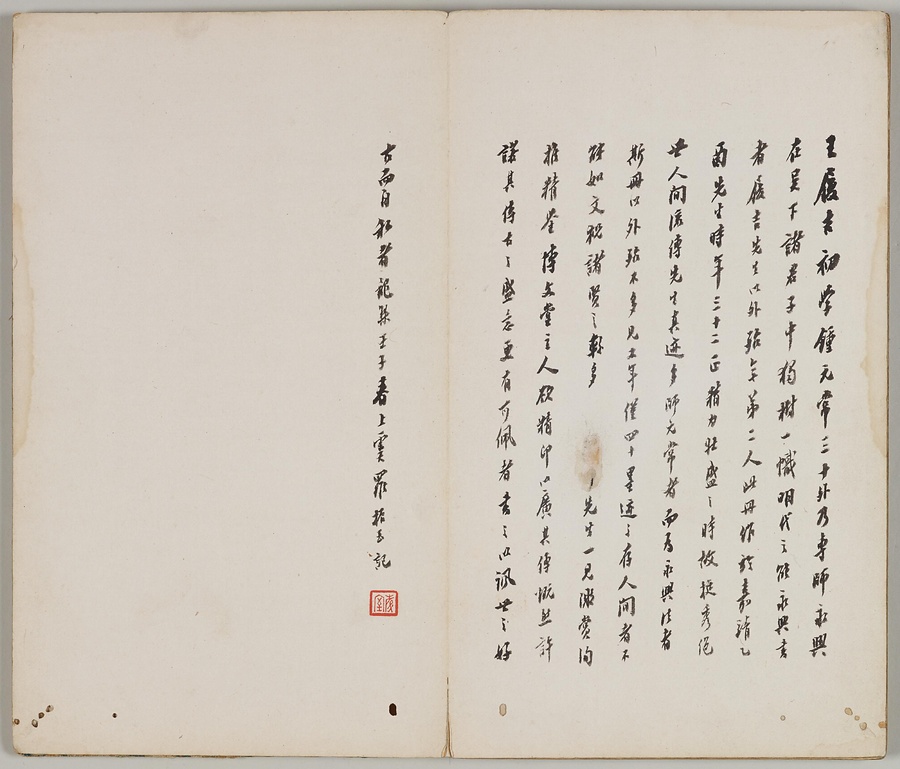 王履吉初學鍾元常三十外乃專師永興
在吳下諸君子中獨樹一幟明代之能永興書
者履吉先生以外殆無第二人此冊作於嘉靖乙
酉先生時年三十二正精力壯盛之時故挺秀絕
世人間流傳先生真迹多師元常者而為永興法者
斯冊以外殆不多見上年僅四十墨迹之存人間者不
能如文祝諸賢之夥多
先生一見激賞詢
推精鑒博文堂主人欲精印以廣其傳慨然許
諾其傳古之盛意更有可佩者書之以諗世之好
古而自私者龍集壬子春上虞羅振玉記